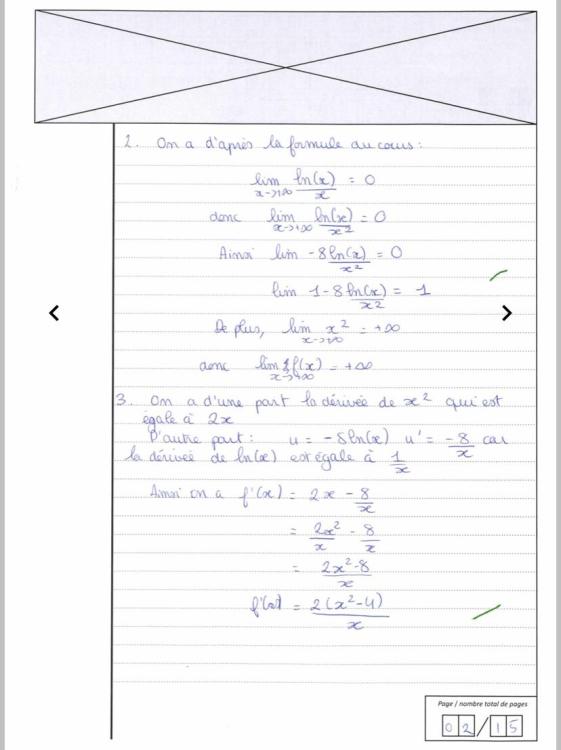 2. On a d'après la formule du cours :
lim x→+∞ ln(x)/x = 0
donc lim x→+∞ ln(x)/x² = 0
Ainsi lim -8ln(x)/x² = 0
lim 1-8ln(x)/x² = 1
De plus, lim x→+∞ x² = +∞
donc lim x→+∞ f(x) = +∞
3. On a d'une part la dérivée de x² qui est
égale à 2x
D'autre part : u = -8ln(x) u' = -8/x car
la dérivée de ln(x) est égale à 1/x
Ainsi on a f'(x) = 2x - 8/x
= 2x²/x - 8/x
= 2x²-8/x
f'(x) = 2(x²-4)/x
Page / nombre total de pages
02/15